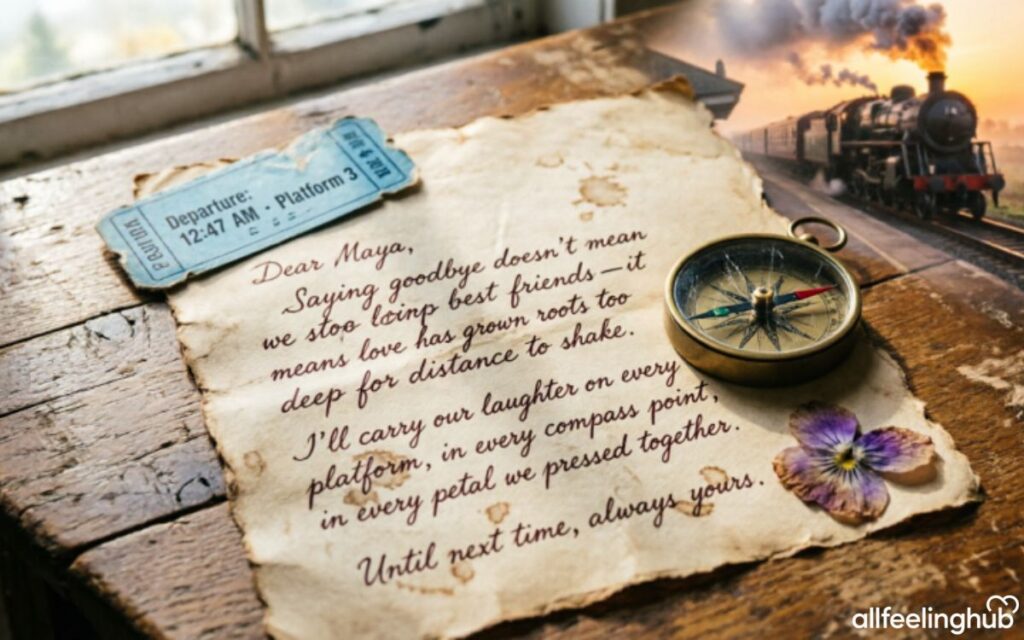 Departure:
12:47 AM · Platform 3
Dear Maya,
Saying goodbye doesn't mean
we stop best friends—it
means love has grown roots too
deep for distance to shake.
I'll carry our laughter on every
platform, in every compass point,
in every petal we pressed together.
Until next time, always yours.
allfeelinghub